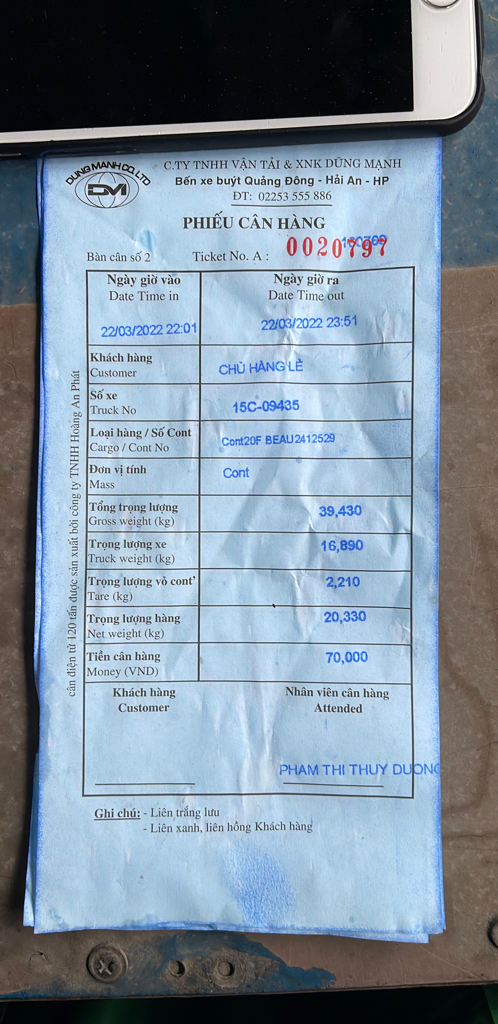 DUNG MANH CO., LTD
DM
C.TY TNHH VẬN TẢI & XNK DŨNG MẠNH
Bến xe buýt Quảng Đông - Hải An - HP
ĐT: 02253 555 886
PHIẾU CÂN HÀNG
Bàn cân số 2 Ticket No. A : 0020797
Ngày giờ vào Ngày giờ ra
Date Time in Date Time out
22/03/2022 22:01 22/03/2022 23:51
Khách hàng
Customer CHỦ HÀNG LẺ
Số xe
Truck No 15C-09435
Loại hàng / Số Cont
Cargo / Cont No Cont20F BEAU2412529
Đơn vị tính Cont
Mass
Tổng trọng lượng 39,430
Gross weight (kg)
Trọng lượng xe 16,890
Truck weight (kg)
Trọng lượng vỏ cont' 2,210
Tare (kg)
Trọng lượng hàng 20,330
Net weight (kg)
Tiền cân hàng 70,000
Money (VND)
Khách hàng Nhân viên cân hàng
Customer Attended
PHAM THI THUY DUONG
Ghi chú: - Liên trắng lưu
- Liên xanh, liên hồng Khách hàng
cân điện tử 120 tấn được sản xuất bởi công ty TNHH Hoàng An Phát